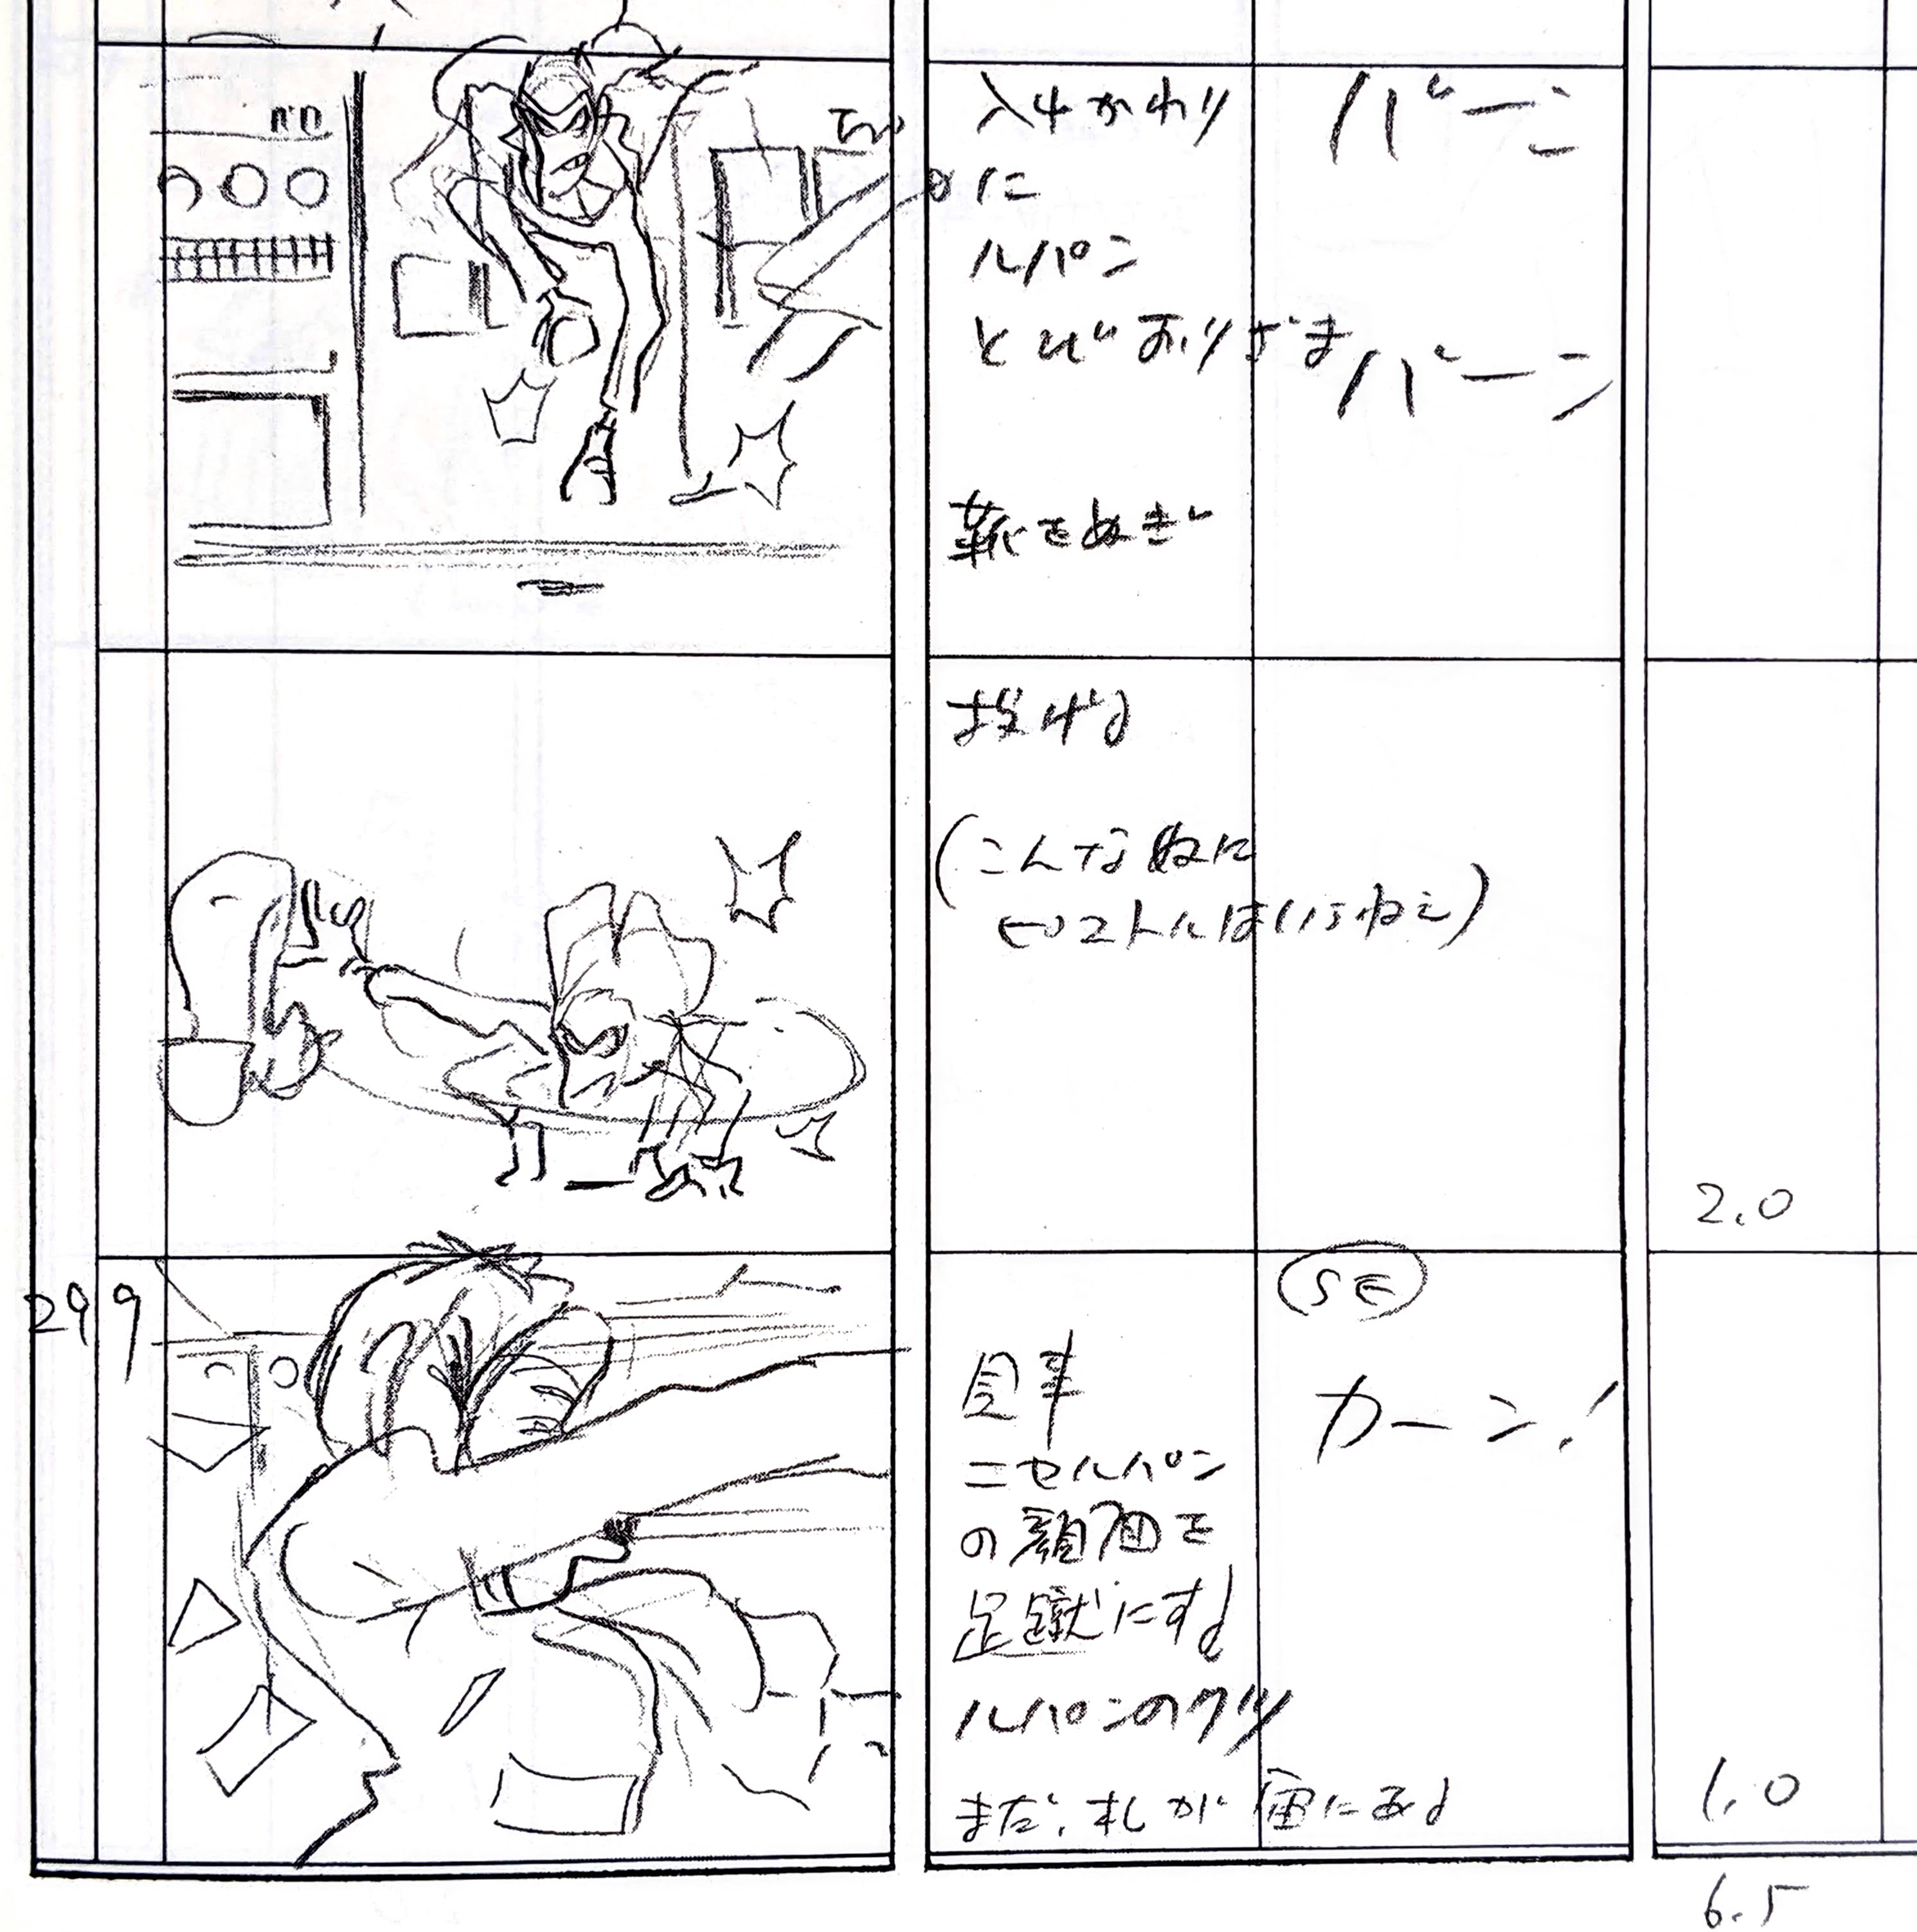 入れかわり
に
ルパン
とびおりざま
バーン
バーン
靴をぬぎ
投げる
(こんな奴に
ピストルはいらねえ)
2.0
299
SE
見事
ニセルパン
の顔面を
足蹴にする
ルパンのクツ
まだ、札が宙にある
カーン!
1.0
6.5